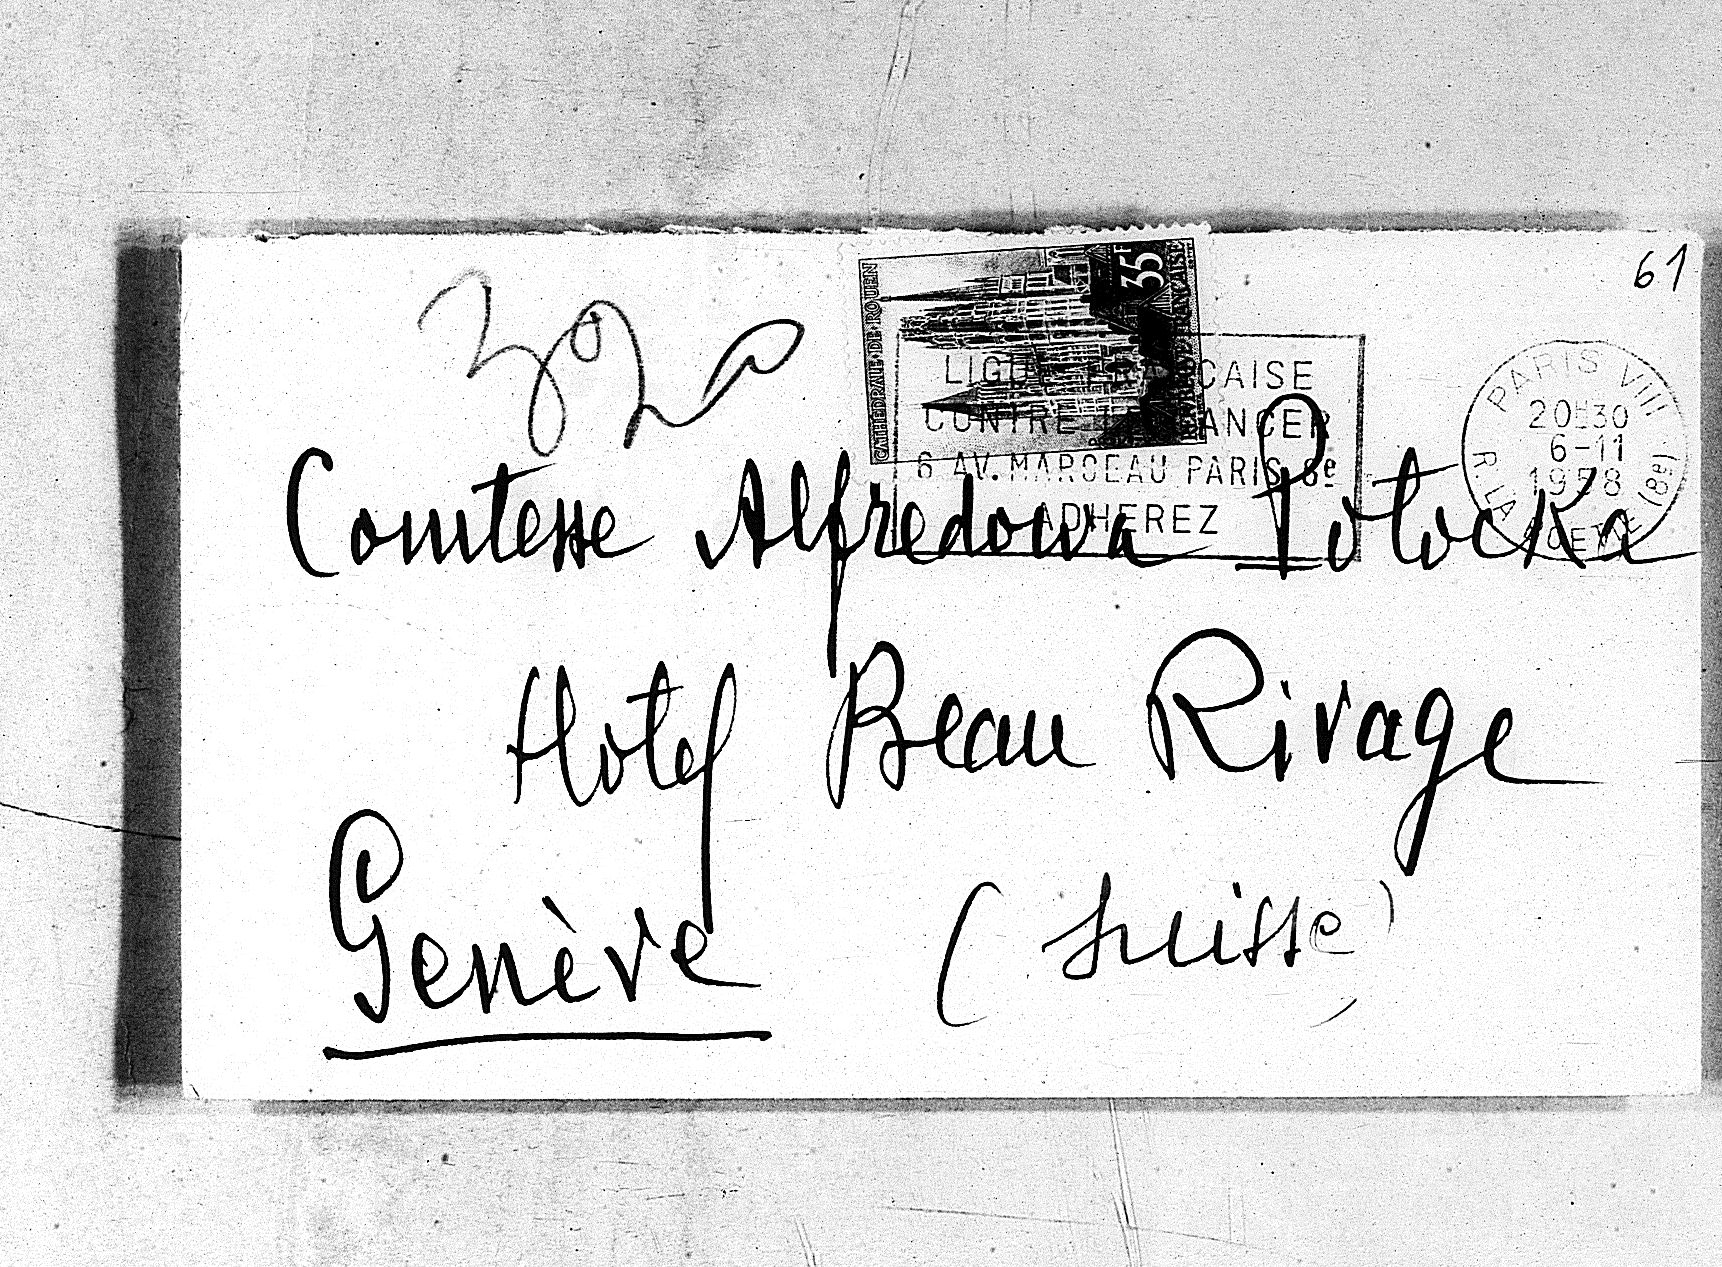 61
320
CATHEDRALE DE ROUEN
35F
LIGUE FRANCAISE
CONTRE LE CANCER
6 AV. MARCEAU PARIS 8e
ADHEREZ
PARIS VIII
20H30
6-11
1958
R. LA BOETIE (8e)
Comtesse Alfredowa Potocka
Hotel Beau Rivage
Genève (Suisse)